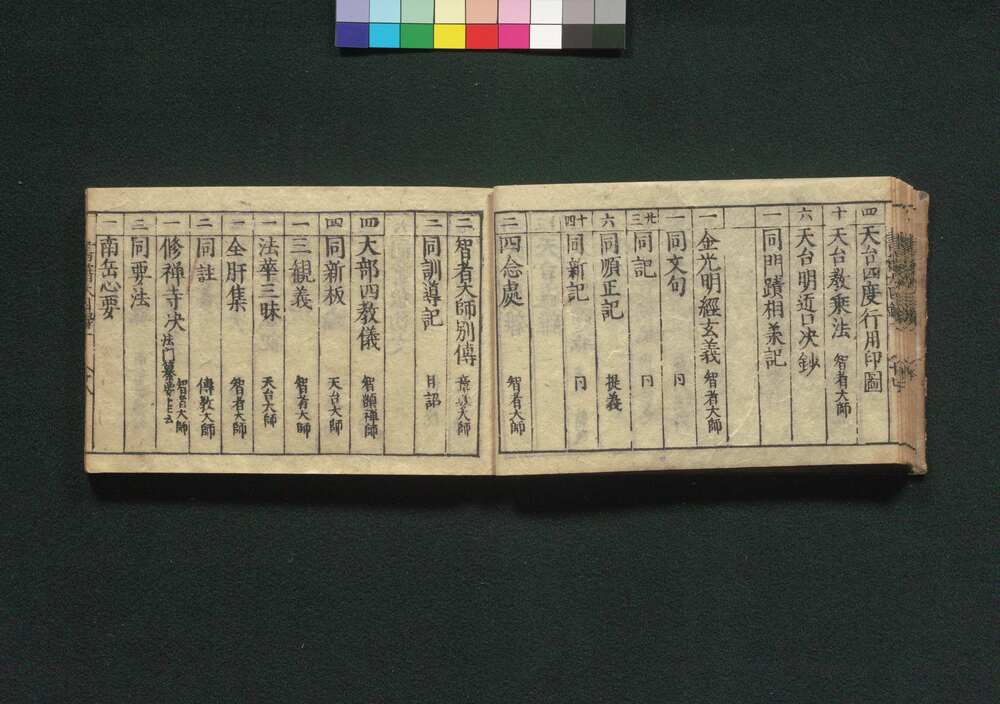 四 天台四度行用印圖
十 天台教乘法 智者大師
六 天台明近口决鈔
一 同門蹟相承記
一 金光明經玄義 智者大師
一 同文句 同
三 同記 同
六 同順正記 提義
十四 同新記 同
二 四念處 智者大師
二 智者大師別傳 章安大師
二 同訓導記 日詔
四 大部四教儀 智顗禅師
四 同新板 天台大師
一 三観義 智者大師
一 法華三昧 天台大師
一 全肝集 智者大師
二 同註 傳教大師
一 修禅寺决 智者大師
三 同要法
一 南岳心要